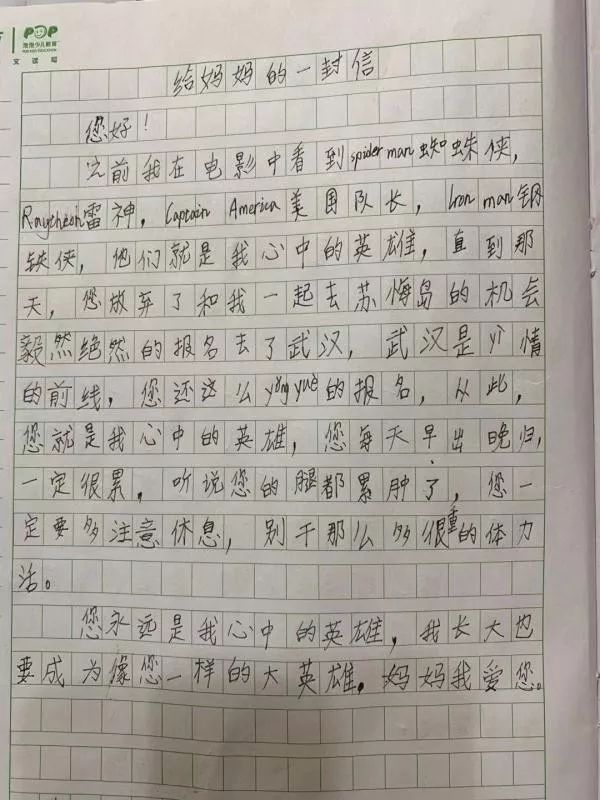 POP
泡泡少儿教育
POP KIDS EDUCATION
文读写
给妈妈的一封信
您好！
之前我在电影中看到spider man蜘蛛侠，
Raytheon雷神，Captain America美国队长，Iron man钢
铁侠，他们就是我心中的英雄，直到那
天，您放弃了和我一起去苏梅岛的机会
毅然绝然的报名去了武汉，武汉是yì情
的前线，您还这么yǒng yuè的报名，从此，
您就是我心中的英雄，您每天早出晚归，
一定很累，听说您的腿都累肿了，您一
定要多注意休息，别干那么多很重的体力
活。
您永远是我心中的英雄，我长大也
要成为像您一样的大英雄，妈妈我爱您。